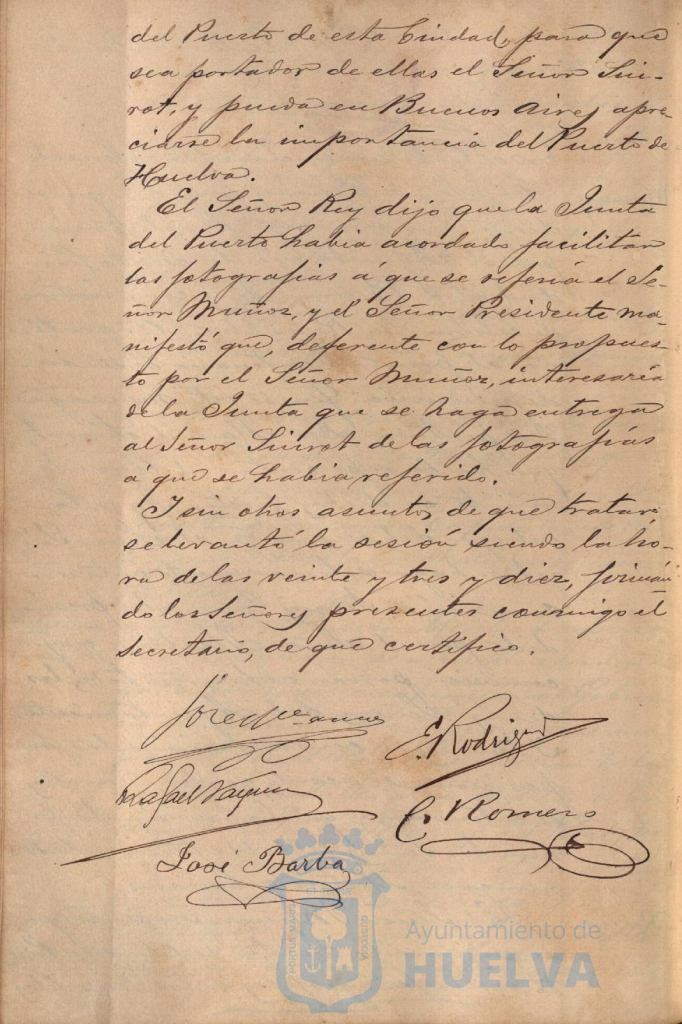 del Puerto de esta Ciudad, para que
sea portador de ellas el Señor Siu-
rot, y pueda en Buenos Aires apre-
ciarse la importancia del Puerto de
Huelva.
El Señor Rey dijo que la Junta
del Puerto habia acordado facilitar
las fotografias á que se referia el Se-
ñor Muñoz, y el Señor Presidente ma-
nifestó que, deferente con lo propues-
to por el Señor Muñoz, interesaria
de la Junta que se haga entrega
al Señor Siurot de las fotografias
á que se habia referido.
I sin otros asuntos de que tratar
se levantó la sesión siendo la ho-
ra de las veinte y tres y diez, firmán
do los Señores presentes conmigo el
Secretario, de que certifico.
E. Rodriguez
Rafael Vazquez
C. Romero
José Barba
PORTUS MARIS
CUSTODIA
Ayuntamiento de
HUELVA